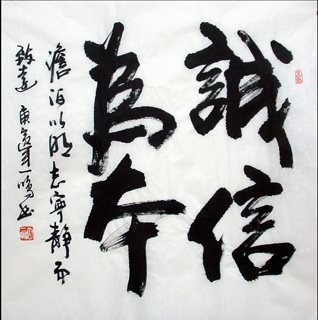 誠信
為本
澹泊以明志寧静而
致遠 庚寅年一鳴书